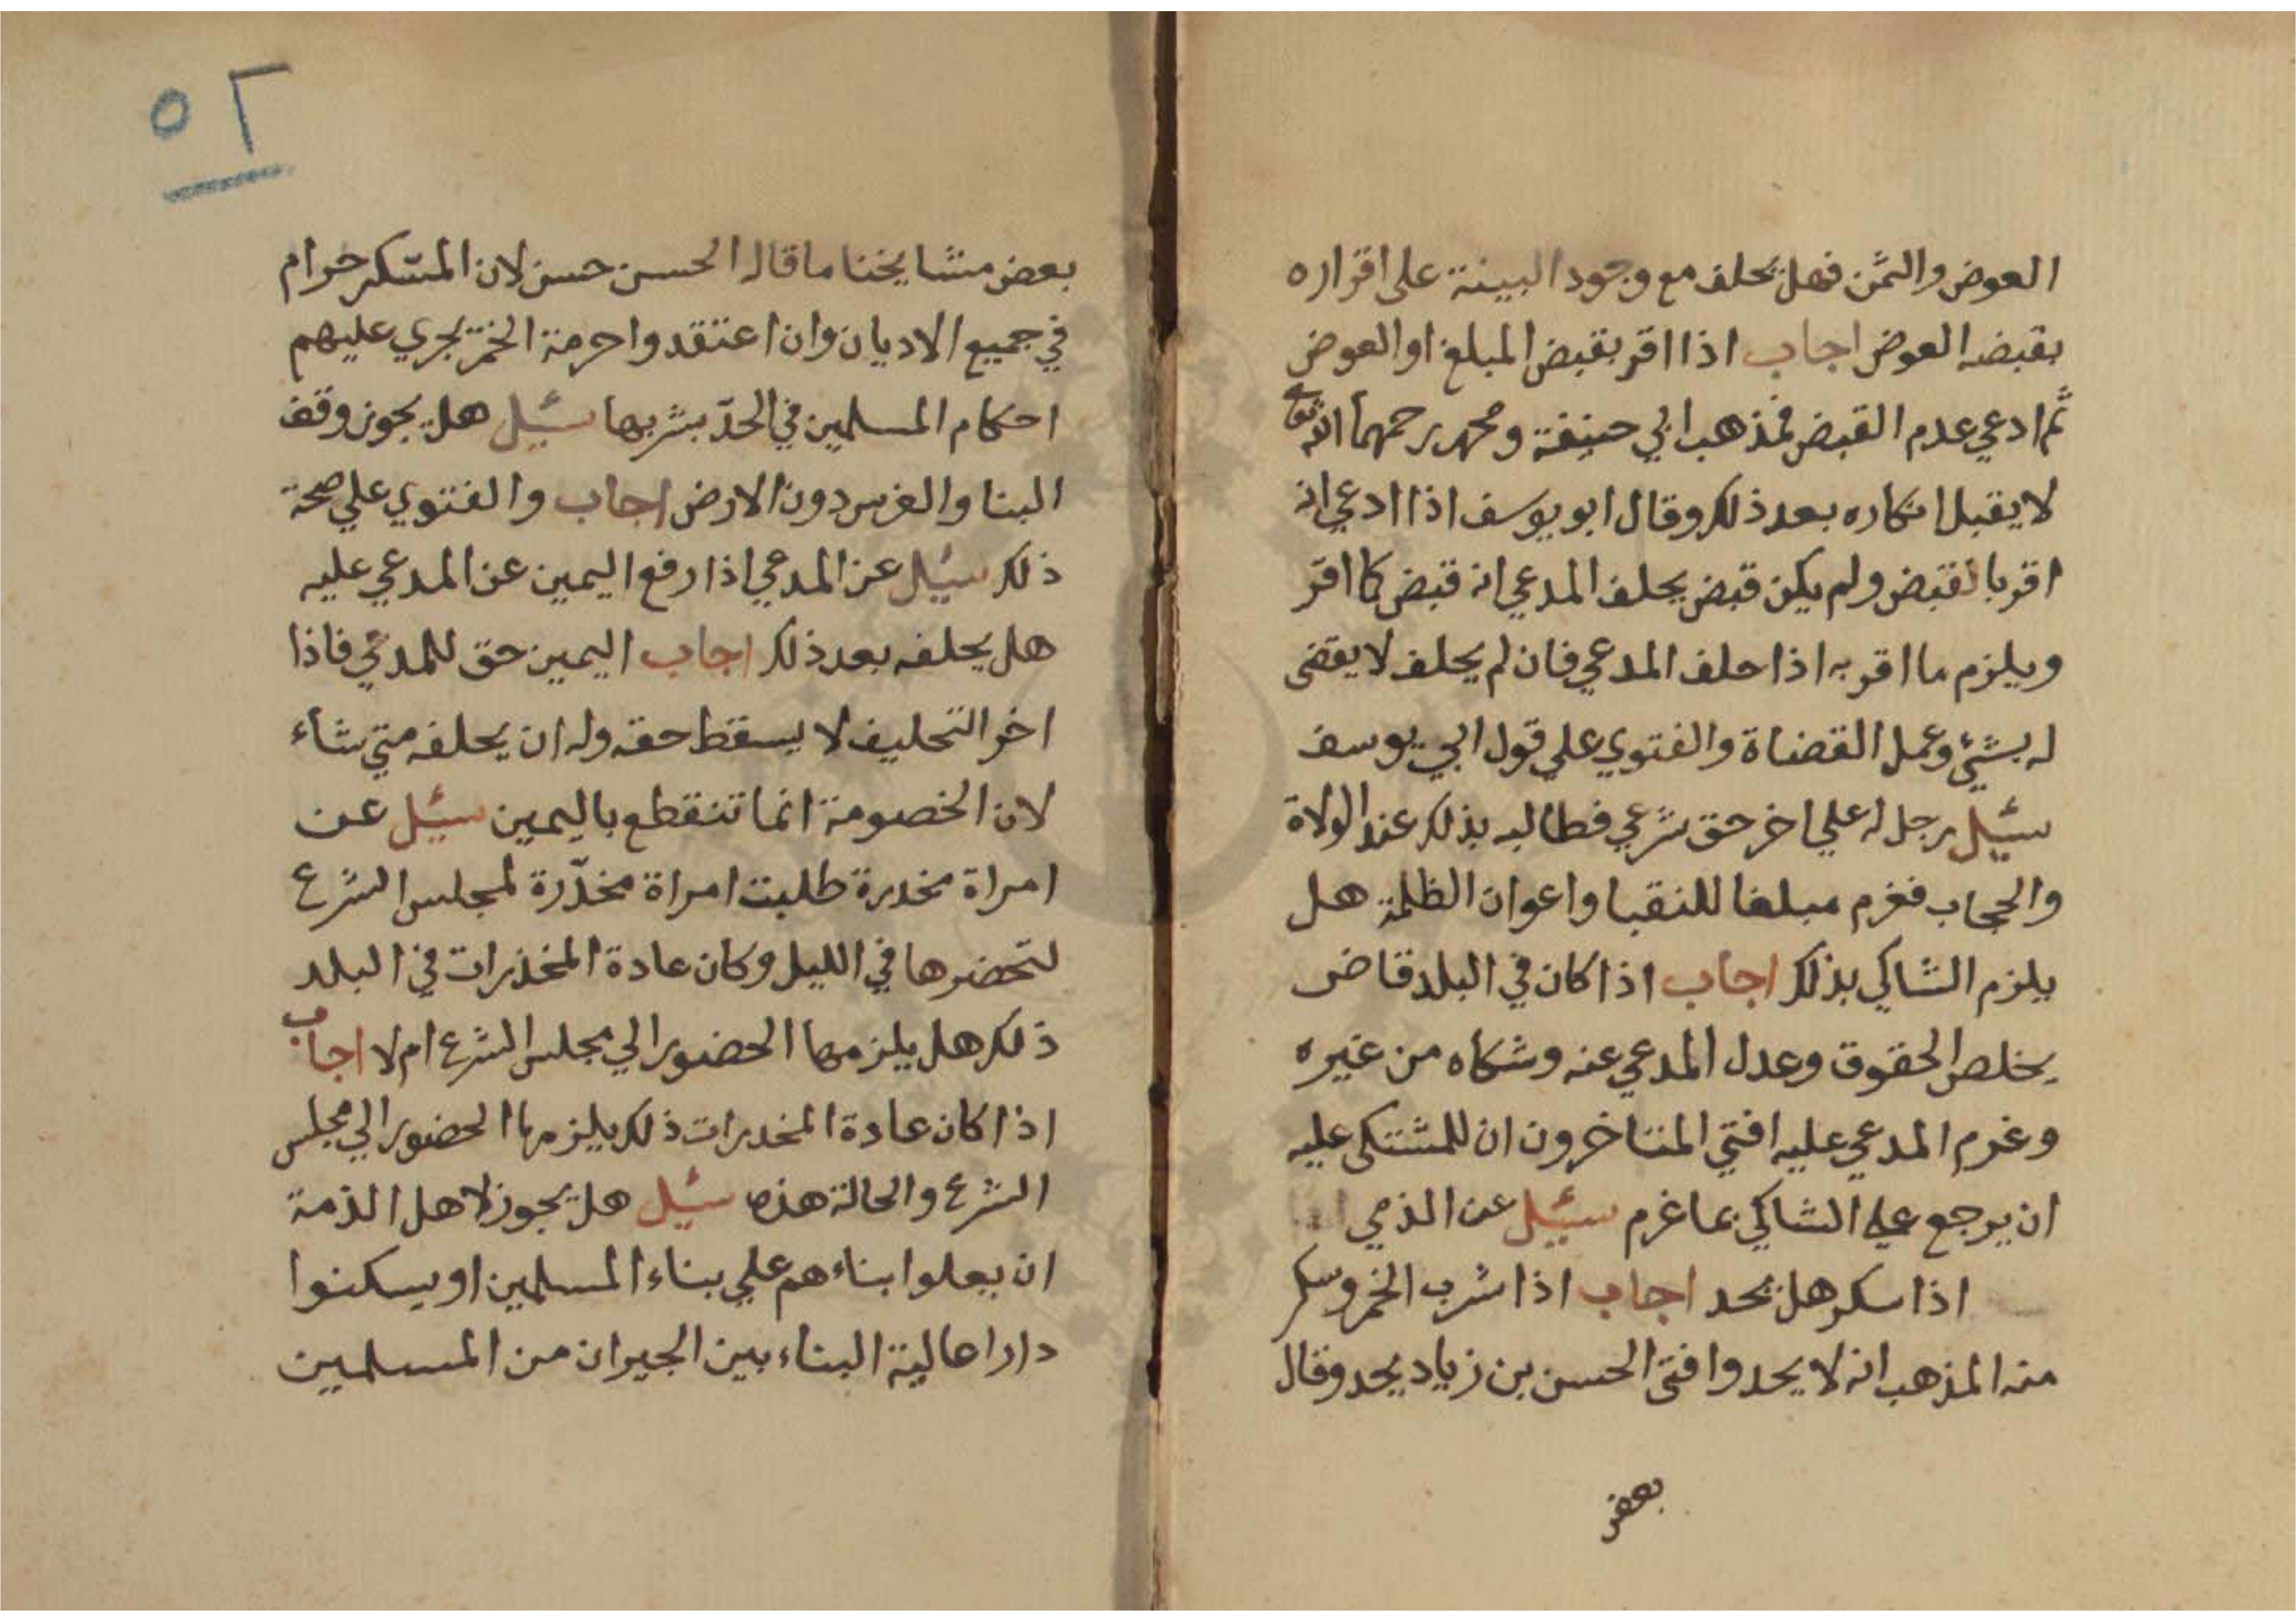 العوض والثمن فهل يحلف مع وجود البينة على اقراره
بقبضه العوض اجاب اذا اقر بقبض المبلغ او العوض
ثم ادعي عدم القبض فمذهب ابي حنيفة ومحمد رحمهما الله تعالى
لا يقبل انكاره بعد ذلك وقال ابو يوسف اذا ادعي انه
اقر بالقبض ولم يكن قبض يحلف المدعي انه قبض كما اقر
ويلزم ما اقر به اذا حلف المدعي فان لم يحلف لا يقضى
له بشئ وعمل القضاة والفتوي علي قول ابي يوسف
سئيل رجل له علي اخر حق شرعي فطالبه بذلك عند الولاة
والحجاب فغرم مبلغا للنقبا واعوان الظلمة هل
يلزم الشاكي بذلك اجاب اذا كان في البلد قاض
يخلص الحقوق وعدل المدعي عنه وشكاه من غيره
وغرم المدعي عليه افتي المتاخرون ان للمشتكى عليه
ان يرجع على الشاكي بما غرم سئيل عن الذمي
اذا سكر هل يحد اجاب اذا شرب الخمر وسكر
منه المذهب انه لا يحد وافتى الحسن بن زياد يحد وقال
بعض
٥٢
بعض مشايخنا ما قاله الحسن حسن لان المسكر حرام
في جميع الاديان وان اعتقدوا حرمة الخمر يجري عليهم
احكام المسلمين في الحدّ بشربها سئيل هل يجوز وقف
البنا والغرس دون الارض اجاب والفتوي علي صحة
ذلك سئيل عن المدعي اذا رفع اليمين عن المدعي عليه
هل يحلفه بعد ذلك اجاب اليمين حق للمدعي فاذا
اخر التحليف لا يسقط حقه وله ان يحلفه متي شاء
لان الخصومة انما تنقطع باليمين سئيل عن
امراة مخدرة طلبت امراة مخدّرة لمجلس الشرع
لتحضرها في الليل وكان عادة المخذرات في البلد
ذلك هل يلزمها الحضور الي مجلس الشرع ام لا اجاب
اذا كان عادة المخدرات ذلك يلزمها الحضور الي مجلس
الشرع والحالة هذه سئيل هل يجوز لاهل الذمة
ان يعلوا بناءهم علي بناء المسلمين او يسكنوا
دارا عالية البناء بين الجيران من المسلمين